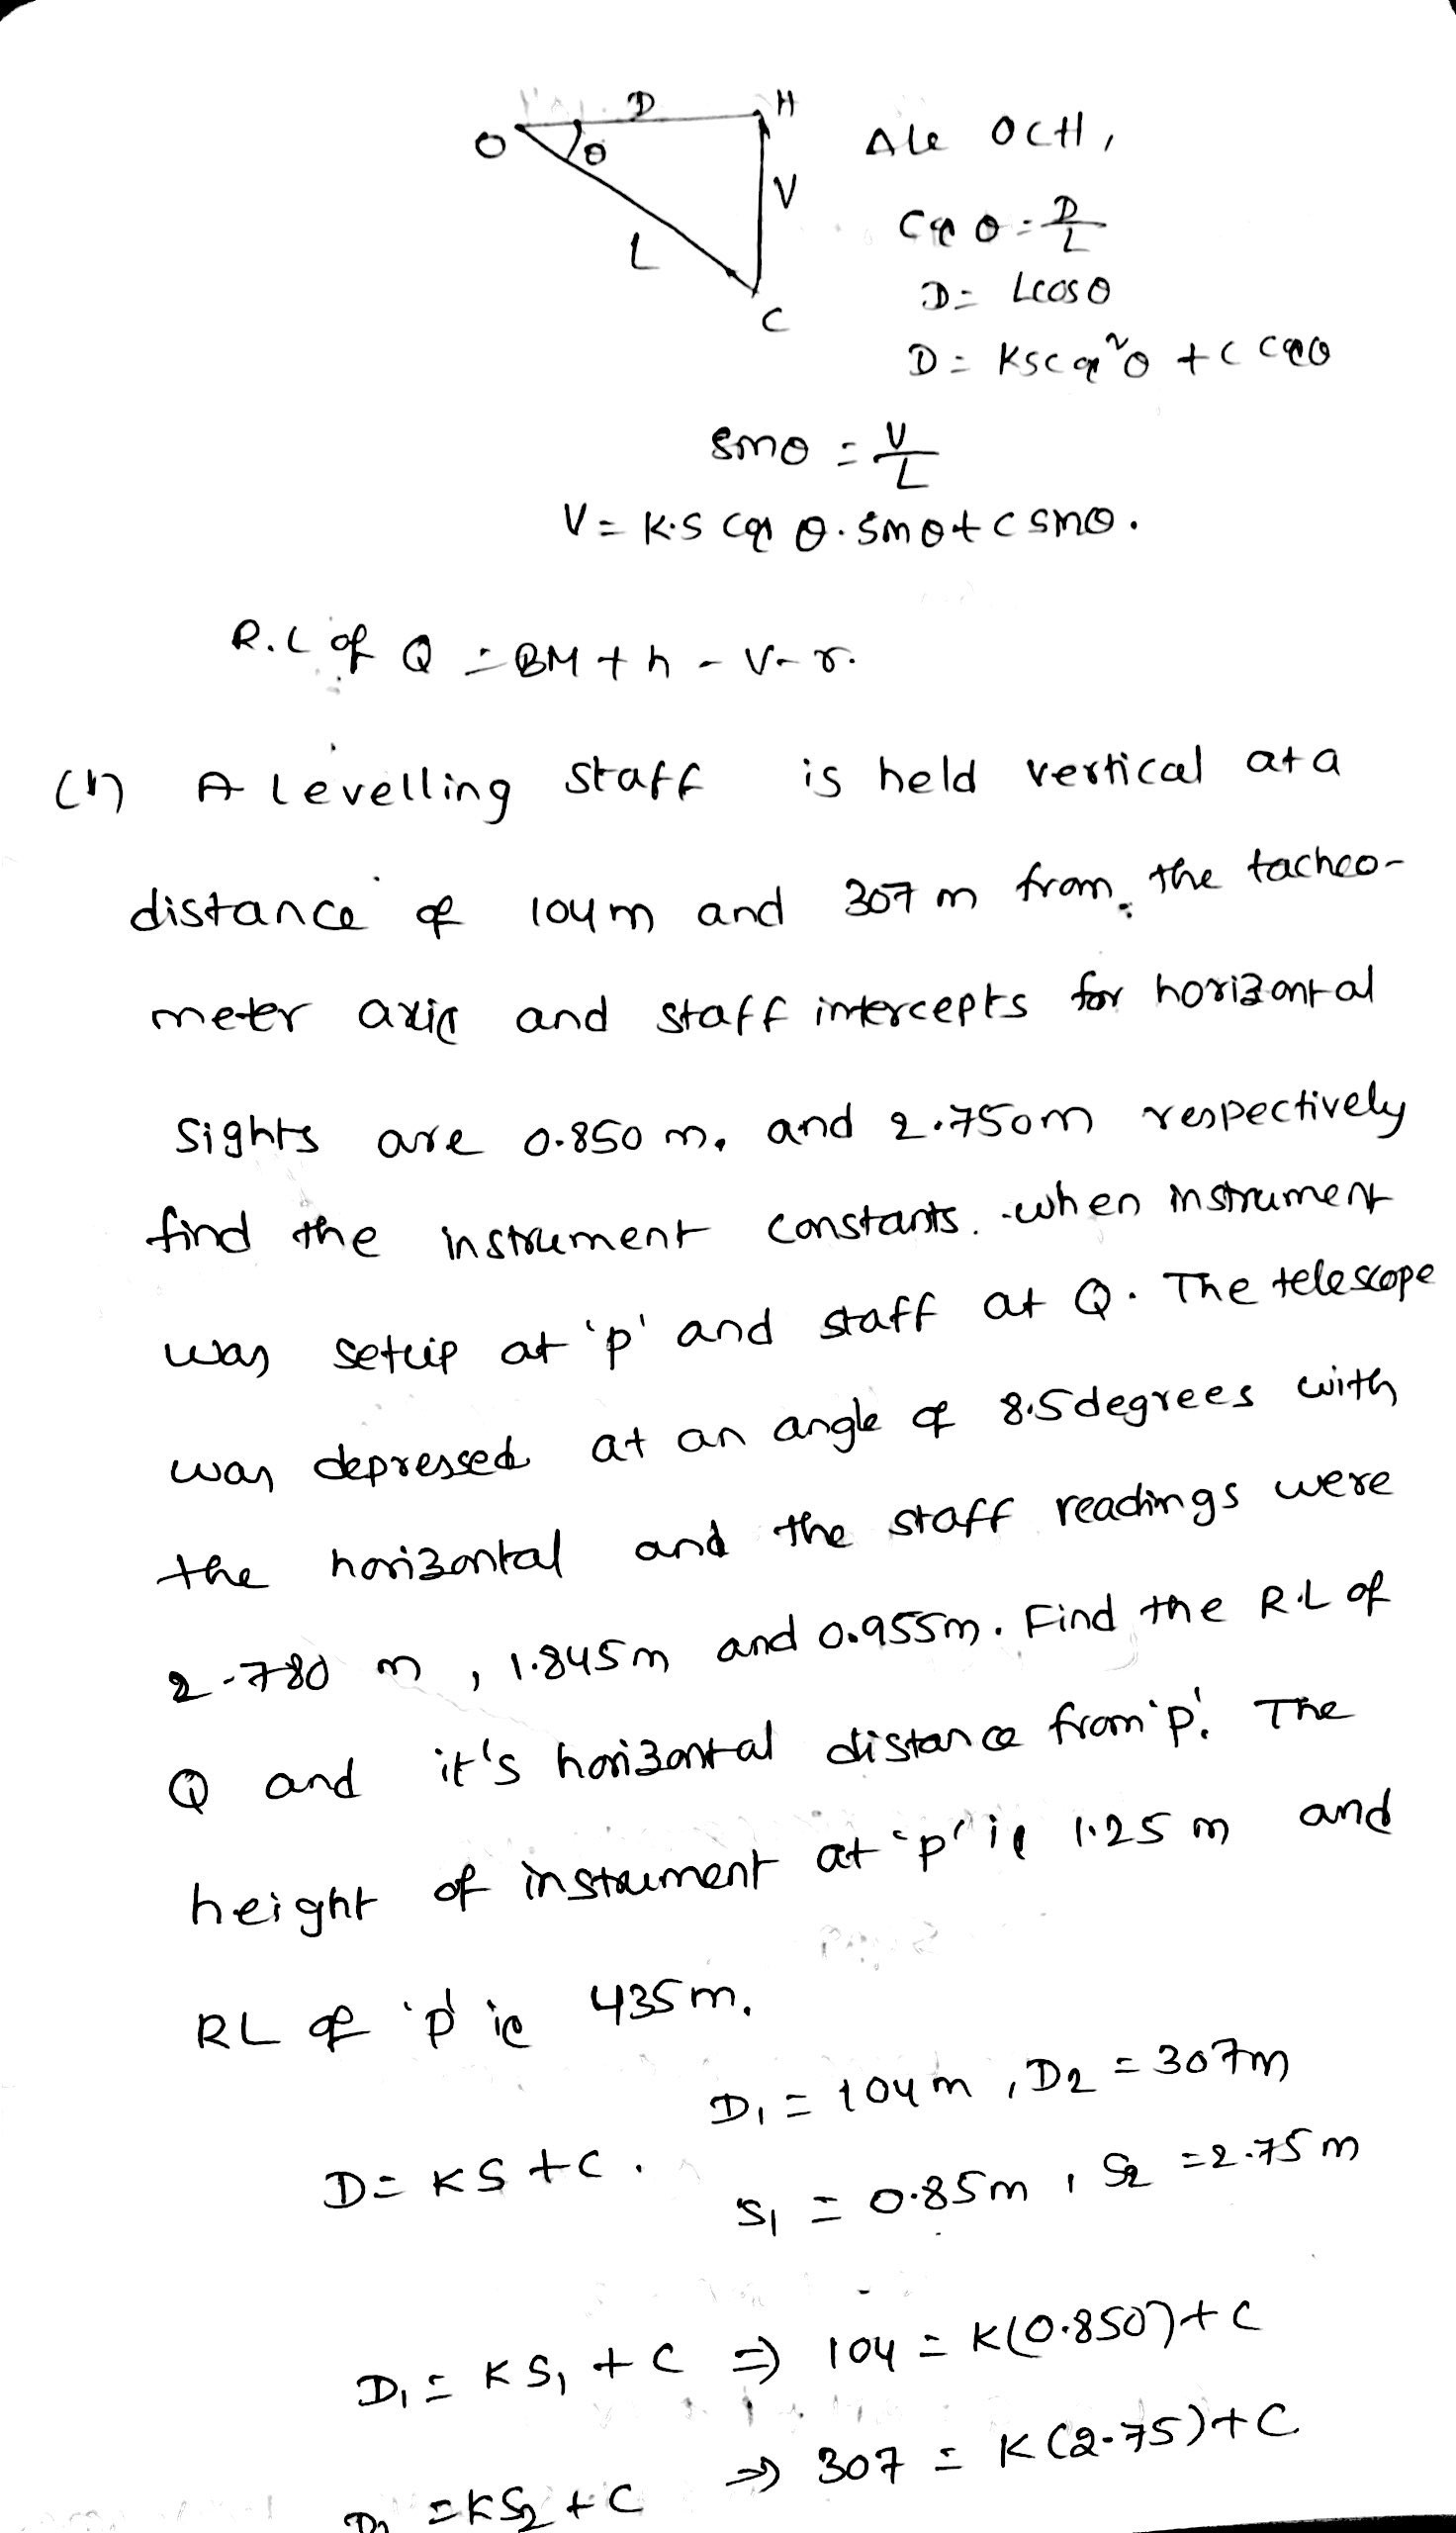 D H
O θ
V
L
C
Δle OCH,
Cos θ = D/L
D = Lcos θ
D = KS cos²θ + C cosθ
sinθ = V/L
V = K.S cos θ. sinθ + C sinθ.
R.L of Q = BM + h - V - r.
(1) A levelling staff is held vertical at a
distance of 104m and 307 m from the tacheo-
meter axis and staff intercepts for horizontal
Sights are 0.850 m. and 2.750m respectively
find the instrument constants. when instrument
was setup at 'p' and staff at Q. The telescope
was depressed at an angle of 8.5degrees with
the horizontal and the staff readings were
2.780 m, 1.845m and 0.955m. Find the R.L of
Q and it's horizontal distance from 'p'. The
height of instrument at 'p' is 1.25 m and
RL of 'p' is 435m.
D₁ = 104m, D₂ = 307m
D = KS + C.
S₁ = 0.85m, S₂ = 2.75m
D₁ = KS₁ + C ⇒ 104 = K(0.850) + C
D₂ = KS₂ + C ⇒ 307 = K(2.75) + C